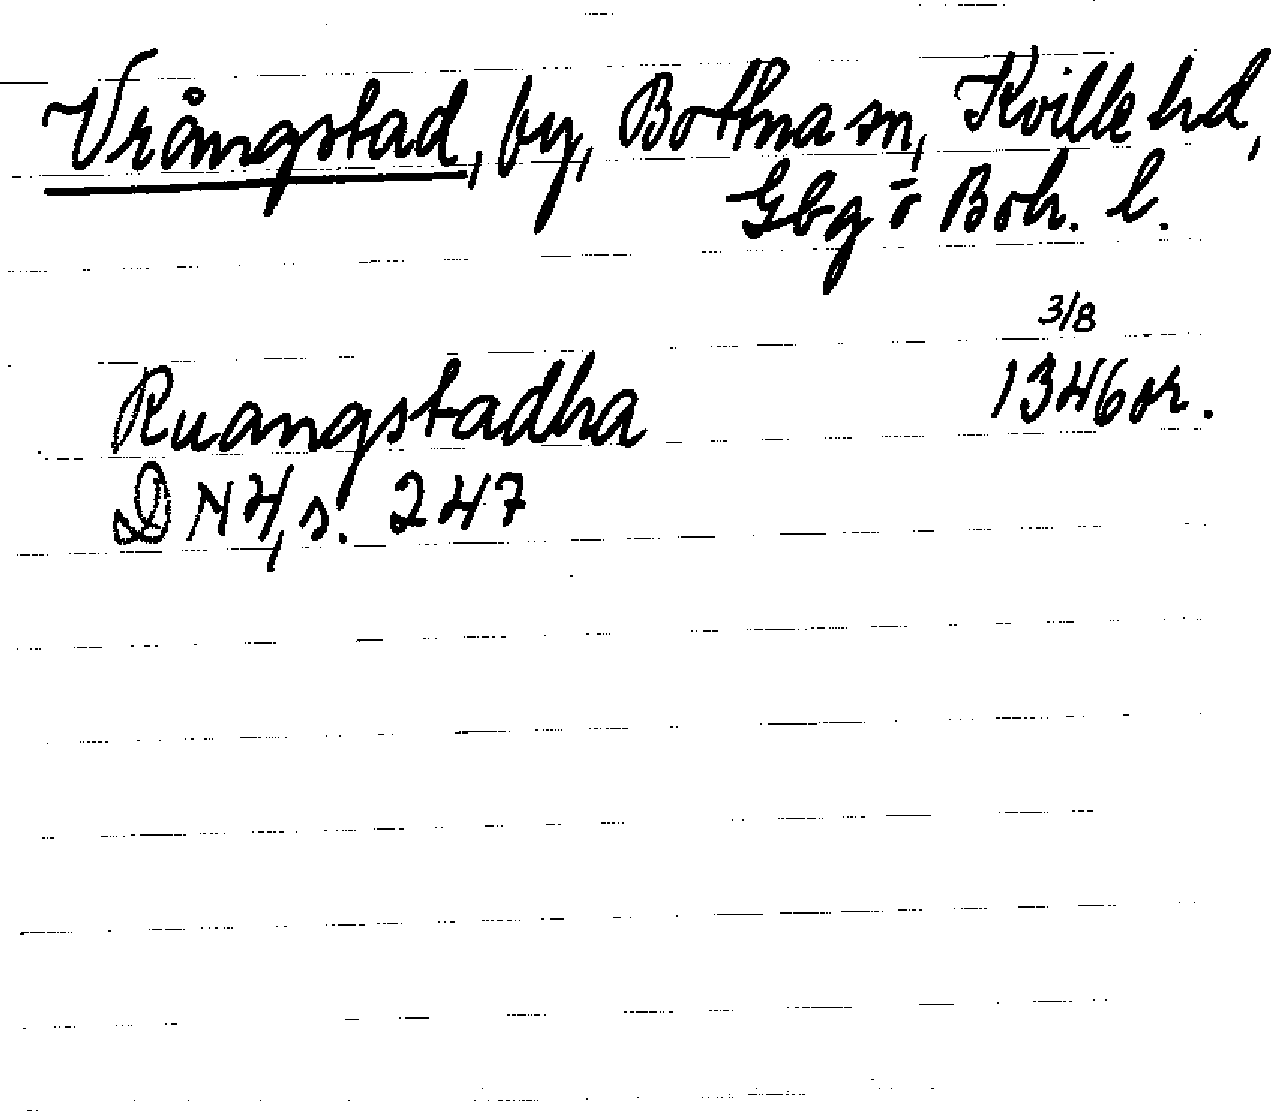 Vrångstad, by, Bottna sn, Kville hd,
Gbg o Boh. l.
3/8
Ruangstadha 1346 or.
DN 4, s. 247